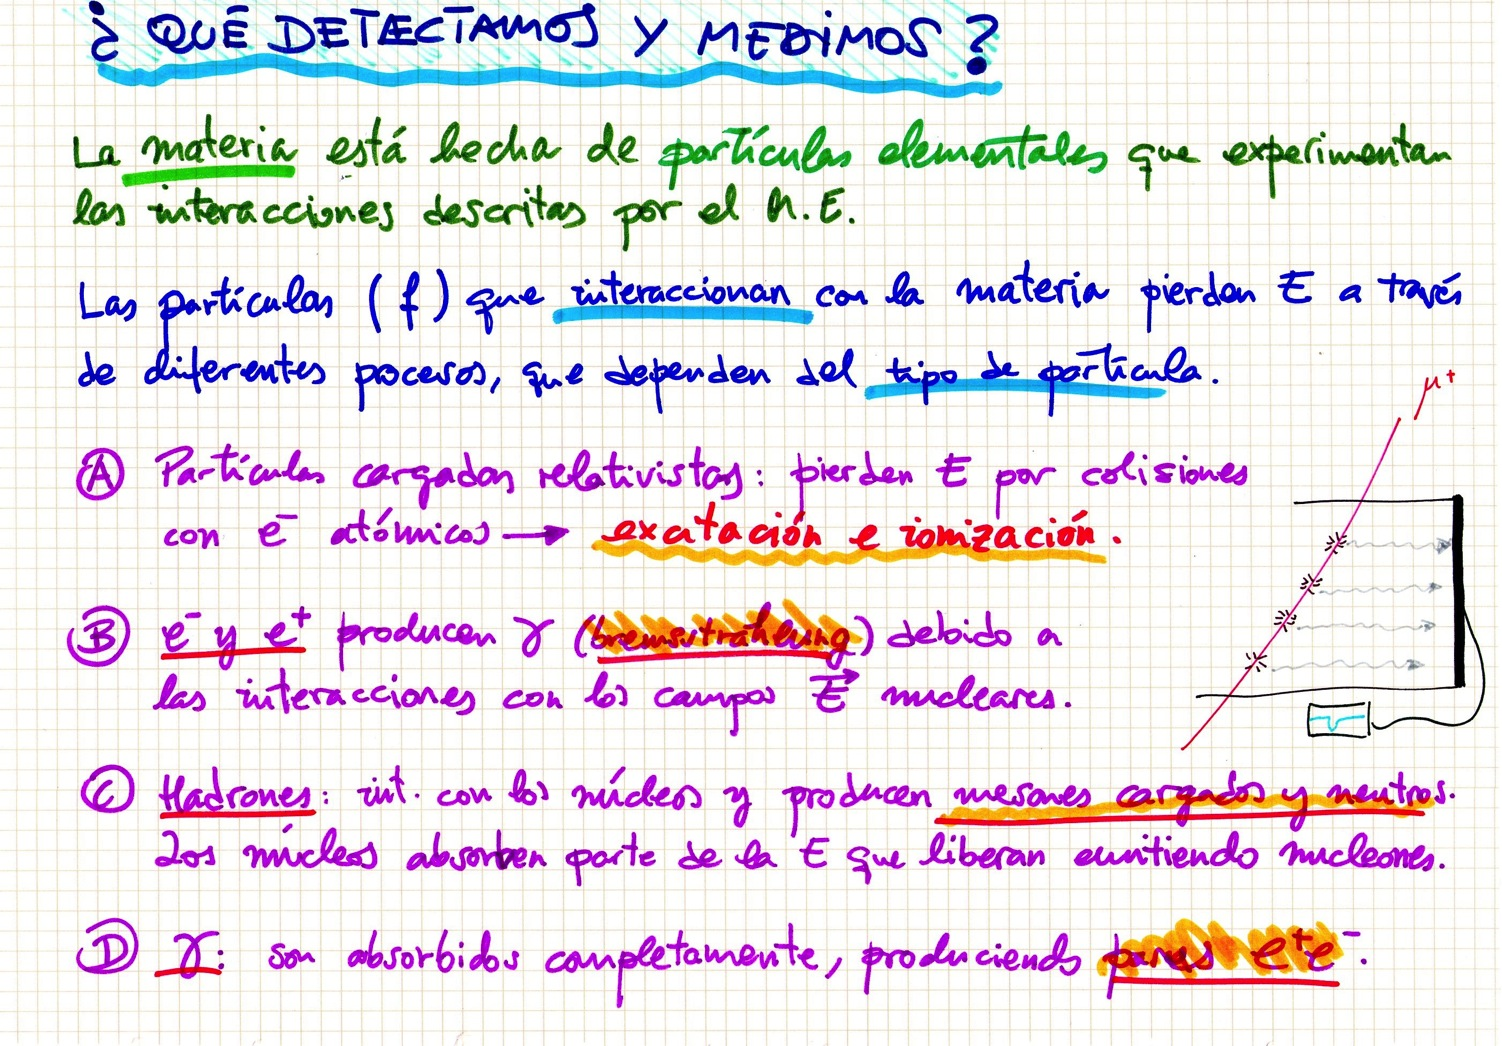 ¿ QUÉ DETECTAMOS Y MEDIMOS ?
La materia está hecha de partículas elementales que experimentan
las interacciones descritas por el M.E.
Las partículas (f) que interaccionan con la materia pierden E a través
de diferentes procesos, que dependen del tipo de partícula.
μ+
A Partículas cargadas relativistas: pierden E por colisiones
con e⁻ atómicos → excitación e ionización.
B e⁻ y e⁺ producen γ (bremsstrahlung) debido a
las interacciones con los campos E⃗ nucleares.
C Hadrones: int. con los núcleos y producen mesones cargados y neutros.
Los núcleos absorben parte de la E que liberan emitiendo nucleones.
D γ: son absorbidos completamente, produciendo pares e⁺e⁻.